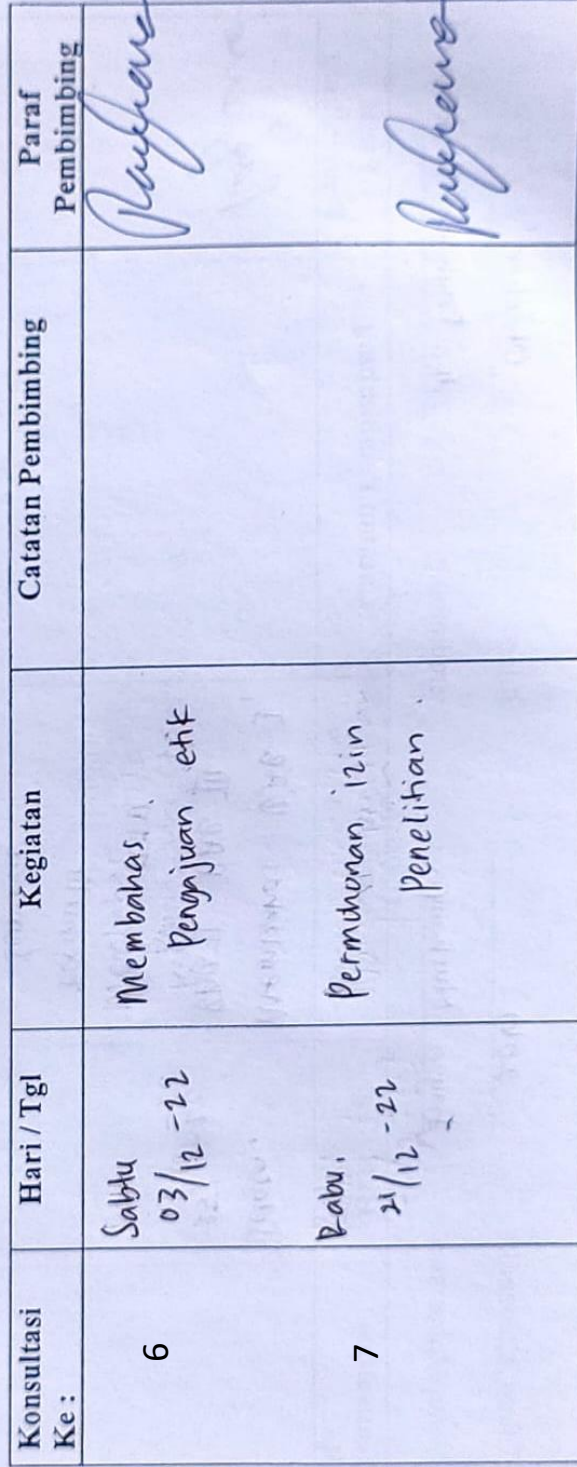 Konsultasi Ke :
Hari / Tgl
Kegiatan
Catatan Pembimbing
Paraf Pembimbing
6
Sabtu
03/12-22
Membahas
Pengajuan etik
7
Rabu.
21/12-22
Permohonan izin
Penelitian.